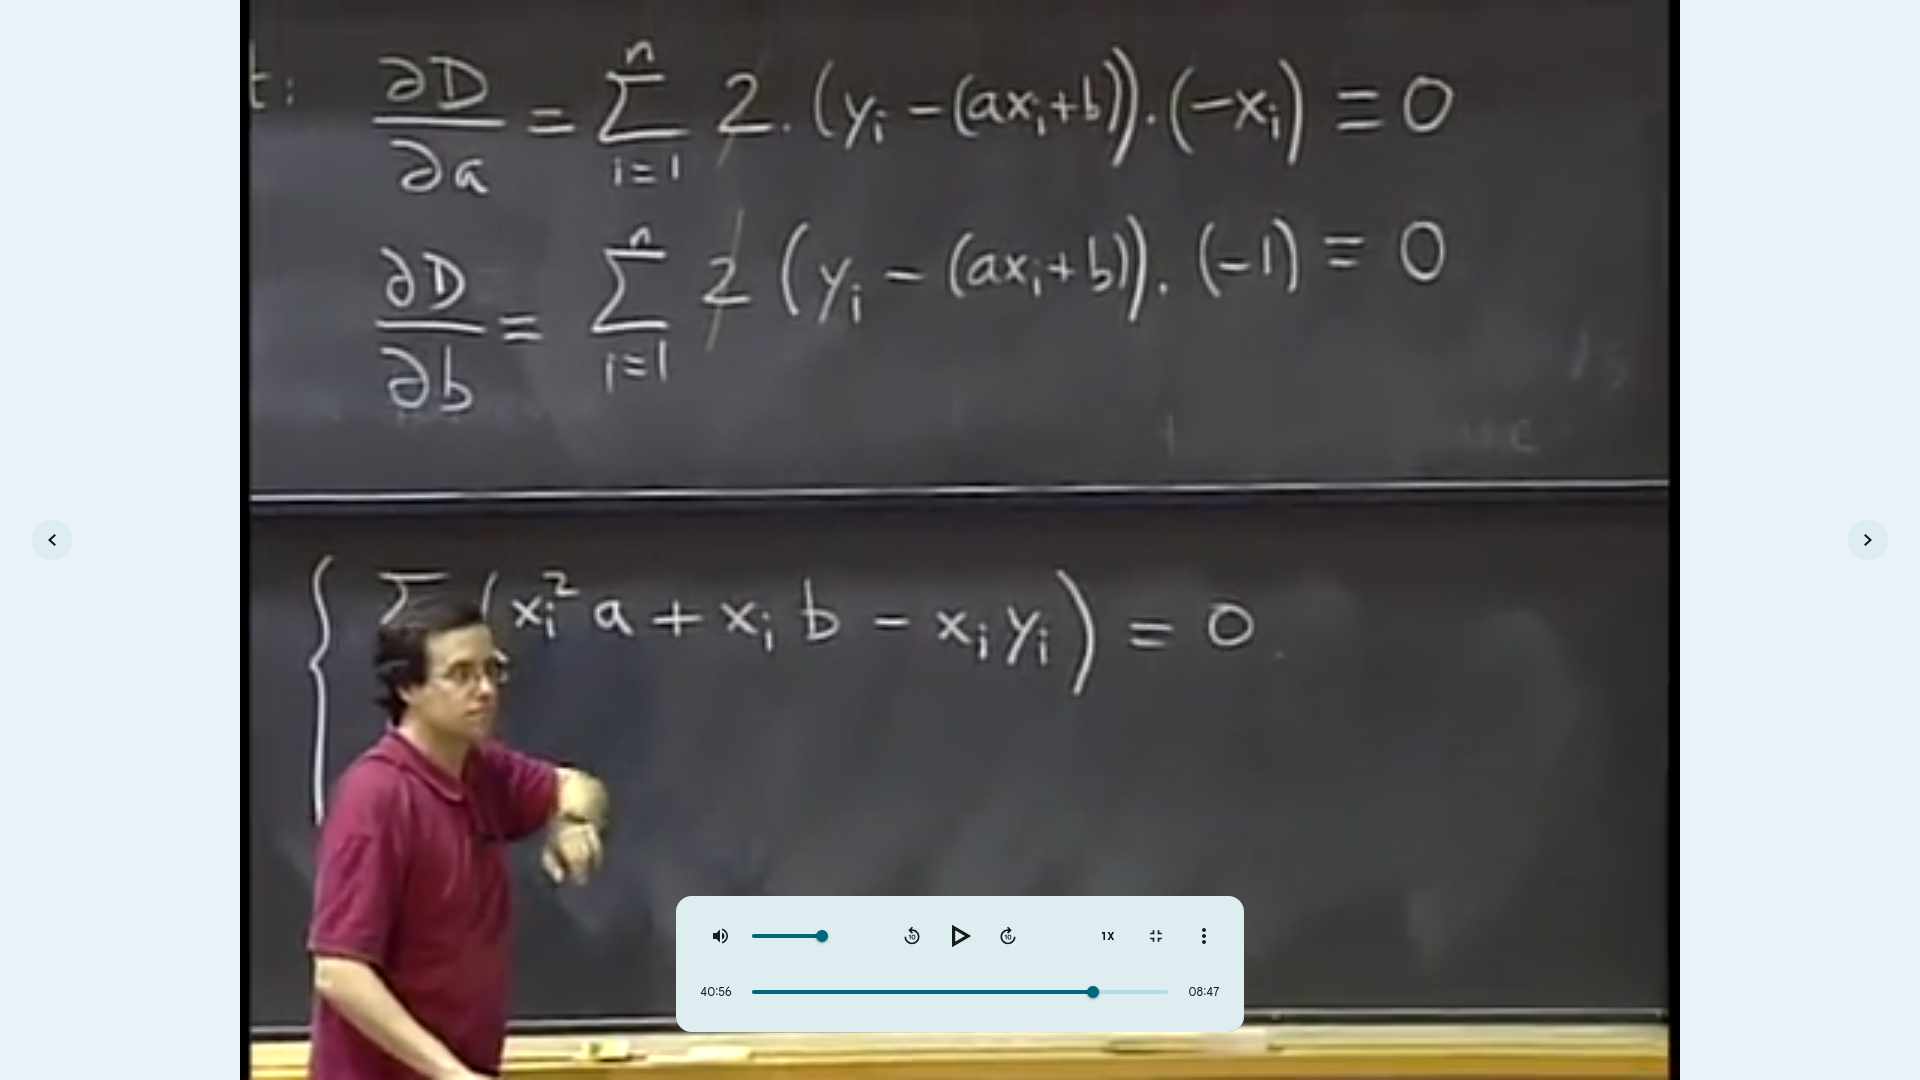 t: ∂D/∂a = ∑ᵢ₌₁ⁿ 2. (yᵢ − (axᵢ+b)).(−xᵢ) = 0
∂D/∂b = ∑ᵢ₌₁ⁿ 2 (yᵢ − (axᵢ+b)). (−1) = 0
{ ∑ (xᵢ² a + xᵢ b − xᵢ yᵢ) = 0
10 10 1X
40:56 08:47